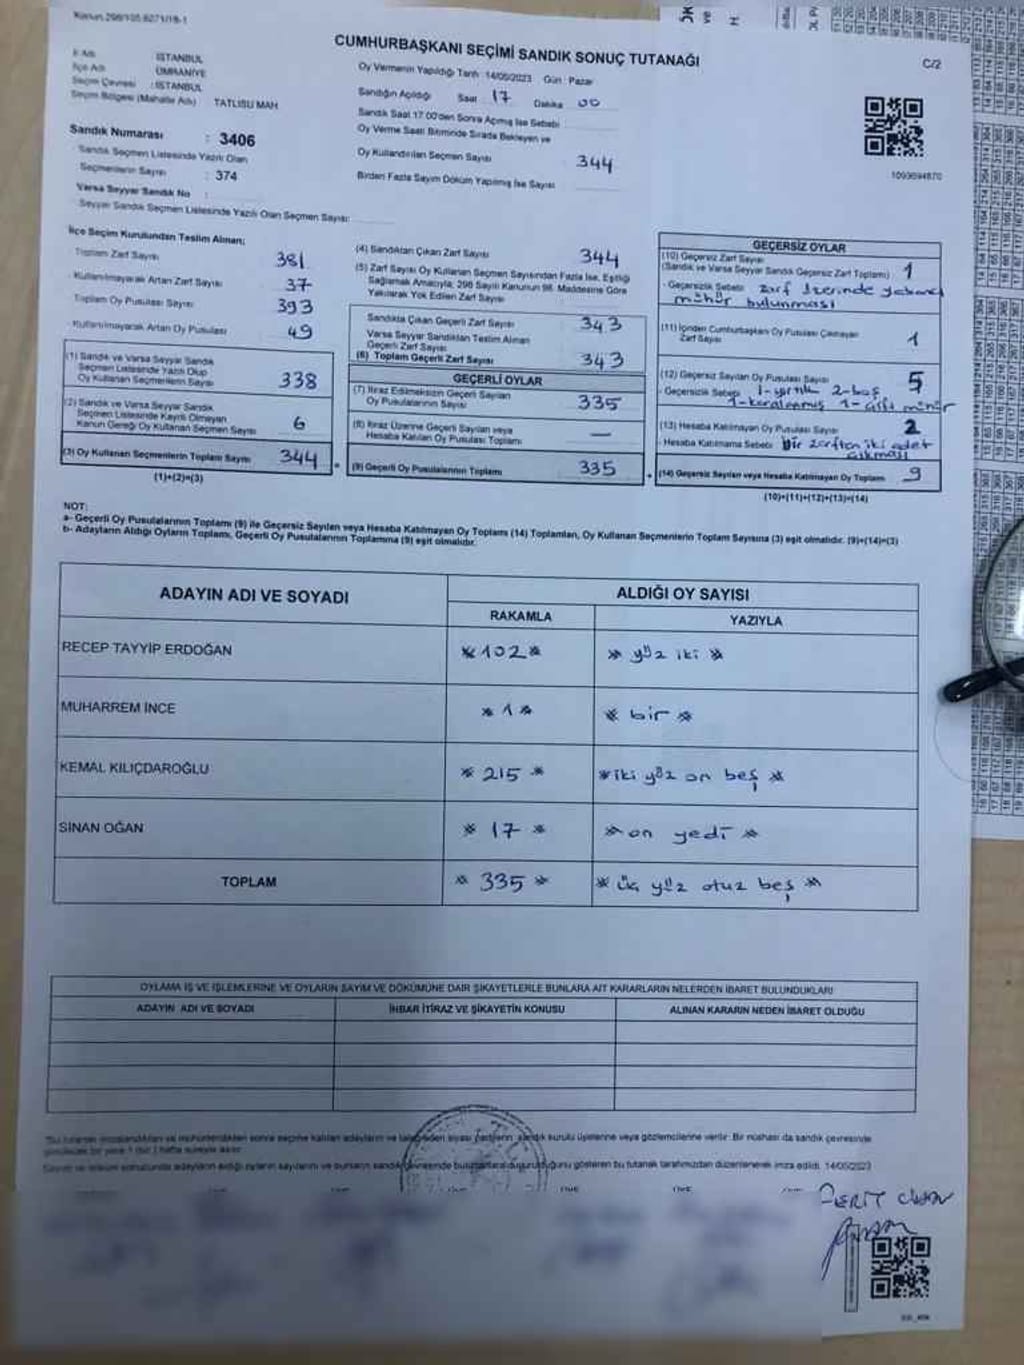 Kanun 298/105,6271/18-1
CUMHURBAŞKANI SEÇİMİ SANDIK SONUÇ TUTANAĞI
C/2
İl Adı : İSTANBUL
İlçe Adı : ÜMRANİYE
Seçim Çevresi : İSTANBUL
Seçim Bölgesi (Mahalle Adı) TATLISU MAH
Oy Vermenin Yapıldığı Tarih 14/05/2023 Gün : Pazar
Sandığın Açıldığı Saat 17 Dakika 00
Sandık Saat 17:00'den Sonra Açılmış İse Sebebi
Oy Verme Saati Bitiminde Sırada Bekleyen ve
Oy Kullandırılan Seçmen Sayısı 344
Birden Fazla Sayım Döküm Yapılmış İse Sayısı
Sandık Numarası : 3406
Sandık Seçmen Listesinde Yazılı Olan
Seçmenlerin Sayısı : 374
Varsa Seyyar Sandık No :
Seyyar Sandık Seçmen Listesinde Yazılı Olan Seçmen Sayısı:
1093694870
İlçe Seçim Kurulundan Teslim Alınan;
Toplam Zarf Sayısı 381
Kullanılmayarak Artan Zarf Sayısı 37
Toplam Oy Pusulası Sayısı 393
Kullanılmayarak Artan Oy Pusulası 49
(1) Sandık ve Varsa Seyyar Sandık
Seçmen Listesinde Yazılı Olup
Oy Kullanan Seçmenlerin Sayısı 338
(2) Sandık ve Varsa Seyyar Sandık
Seçmen Listesinde Kayıtlı Olmayan
Kanun Gereği Oy Kullanan Seçmen Sayısı 6
(3) Oy Kullanan Seçmenlerin Toplam Sayısı 344
(1)+(2)=(3)
(4) Sandıktan Çıkan Zarf Sayısı 344
(5) Zarf Sayısı Oy Kullanan Seçmen Sayısından Fazla İse, Eşitliği
Sağlamak Amacıyla, 298 Sayılı Kanunun 98. Maddesine Göre
Yakılarak Yok Edilen Zarf Sayısı
Sandıkta Çıkan Geçerli Zarf Sayısı 343
Varsa Seyyar Sandıktan Teslim Alınan
Geçerli Zarf Sayısı
(6) Toplam Geçerli Zarf Sayısı 343
GEÇERLİ OYLAR
(7) İtiraz Edilmeksizin Geçerli Sayılan
Oy Pusulalarının Sayısı 335
(8) İtiraz Üzerine Geçerli Sayılan veya
Hesaba Katılan Oy Pusulası Toplamı —
(9) Geçerli Oy Pusulalarının Toplamı 335
GEÇERSİZ OYLAR
(10) Geçersiz Zarf Sayısı
(Sandık ve Varsa Seyyar Sandık Geçersiz Zarf Toplamı) 1
- Geçersizlik Sebebi: zarf üzerinde yabancı
mühür bulunması
(11) İçinden Cumhurbaşkanı Oy Pusulası Çıkmayan
Zarf Sayısı 1
(12) Geçersiz Sayılan Oy Pusulası Sayısı 5
- Geçersizlik Sebebi 1-yırtık 2-boş
1-karalanmış 1-çift mühür
(13) Hesaba Katılmayan Oy Pusulası Sayısı 2
- Hesaba Katılmama Sebebi: bir zarftan iki adet
çıkması
(14) Geçersiz Sayılan veya Hesaba Katılmayan Oy Toplamı 9
(10)+(11)+(12)+(13)=(14)
NOT:
a- Geçerli Oy Pusulalarının Toplamı (9) ile Geçersiz Sayılan veya Hesaba Katılmayan Oy Toplamı (14) Toplamları, Oy Kullanan Seçmenlerin Toplam Sayısına (3) eşit olmalıdır. (9)+(14)=(3)
b- Adayların Aldığı Oyların Toplamı, Geçerli Oy Pusulalarının Toplamına (9) eşit olmalıdır.
ADAYIN ADI VE SOYADI
ALDIĞI OY SAYISI
RAKAMLA
YAZIYLA
RECEP TAYYİP ERDOĞAN * 102 * * yüz iki *
MUHARREM İNCE * 1 * * bir *
KEMAL KILIÇDAROĞLU * 215 * * iki yüz on beş *
SİNAN OĞAN * 17 * * on yedi *
TOPLAM * 335 * * üç yüz otuz beş *
OYLAMA İŞ VE İŞLEMLERİNE VE OYLARIN SAYIM VE DÖKÜMÜNE DAİR ŞİKAYETLERLE BUNLARA AİT KARARLARIN NELERDEN İBARET BULUNDUKLARI
ADAYIN ADI VE SOYADI
İHBAR İTİRAZ VE ŞİKAYETİN KONUSU
ALINAN KARARIN NEDEN İBARET OLDUĞU